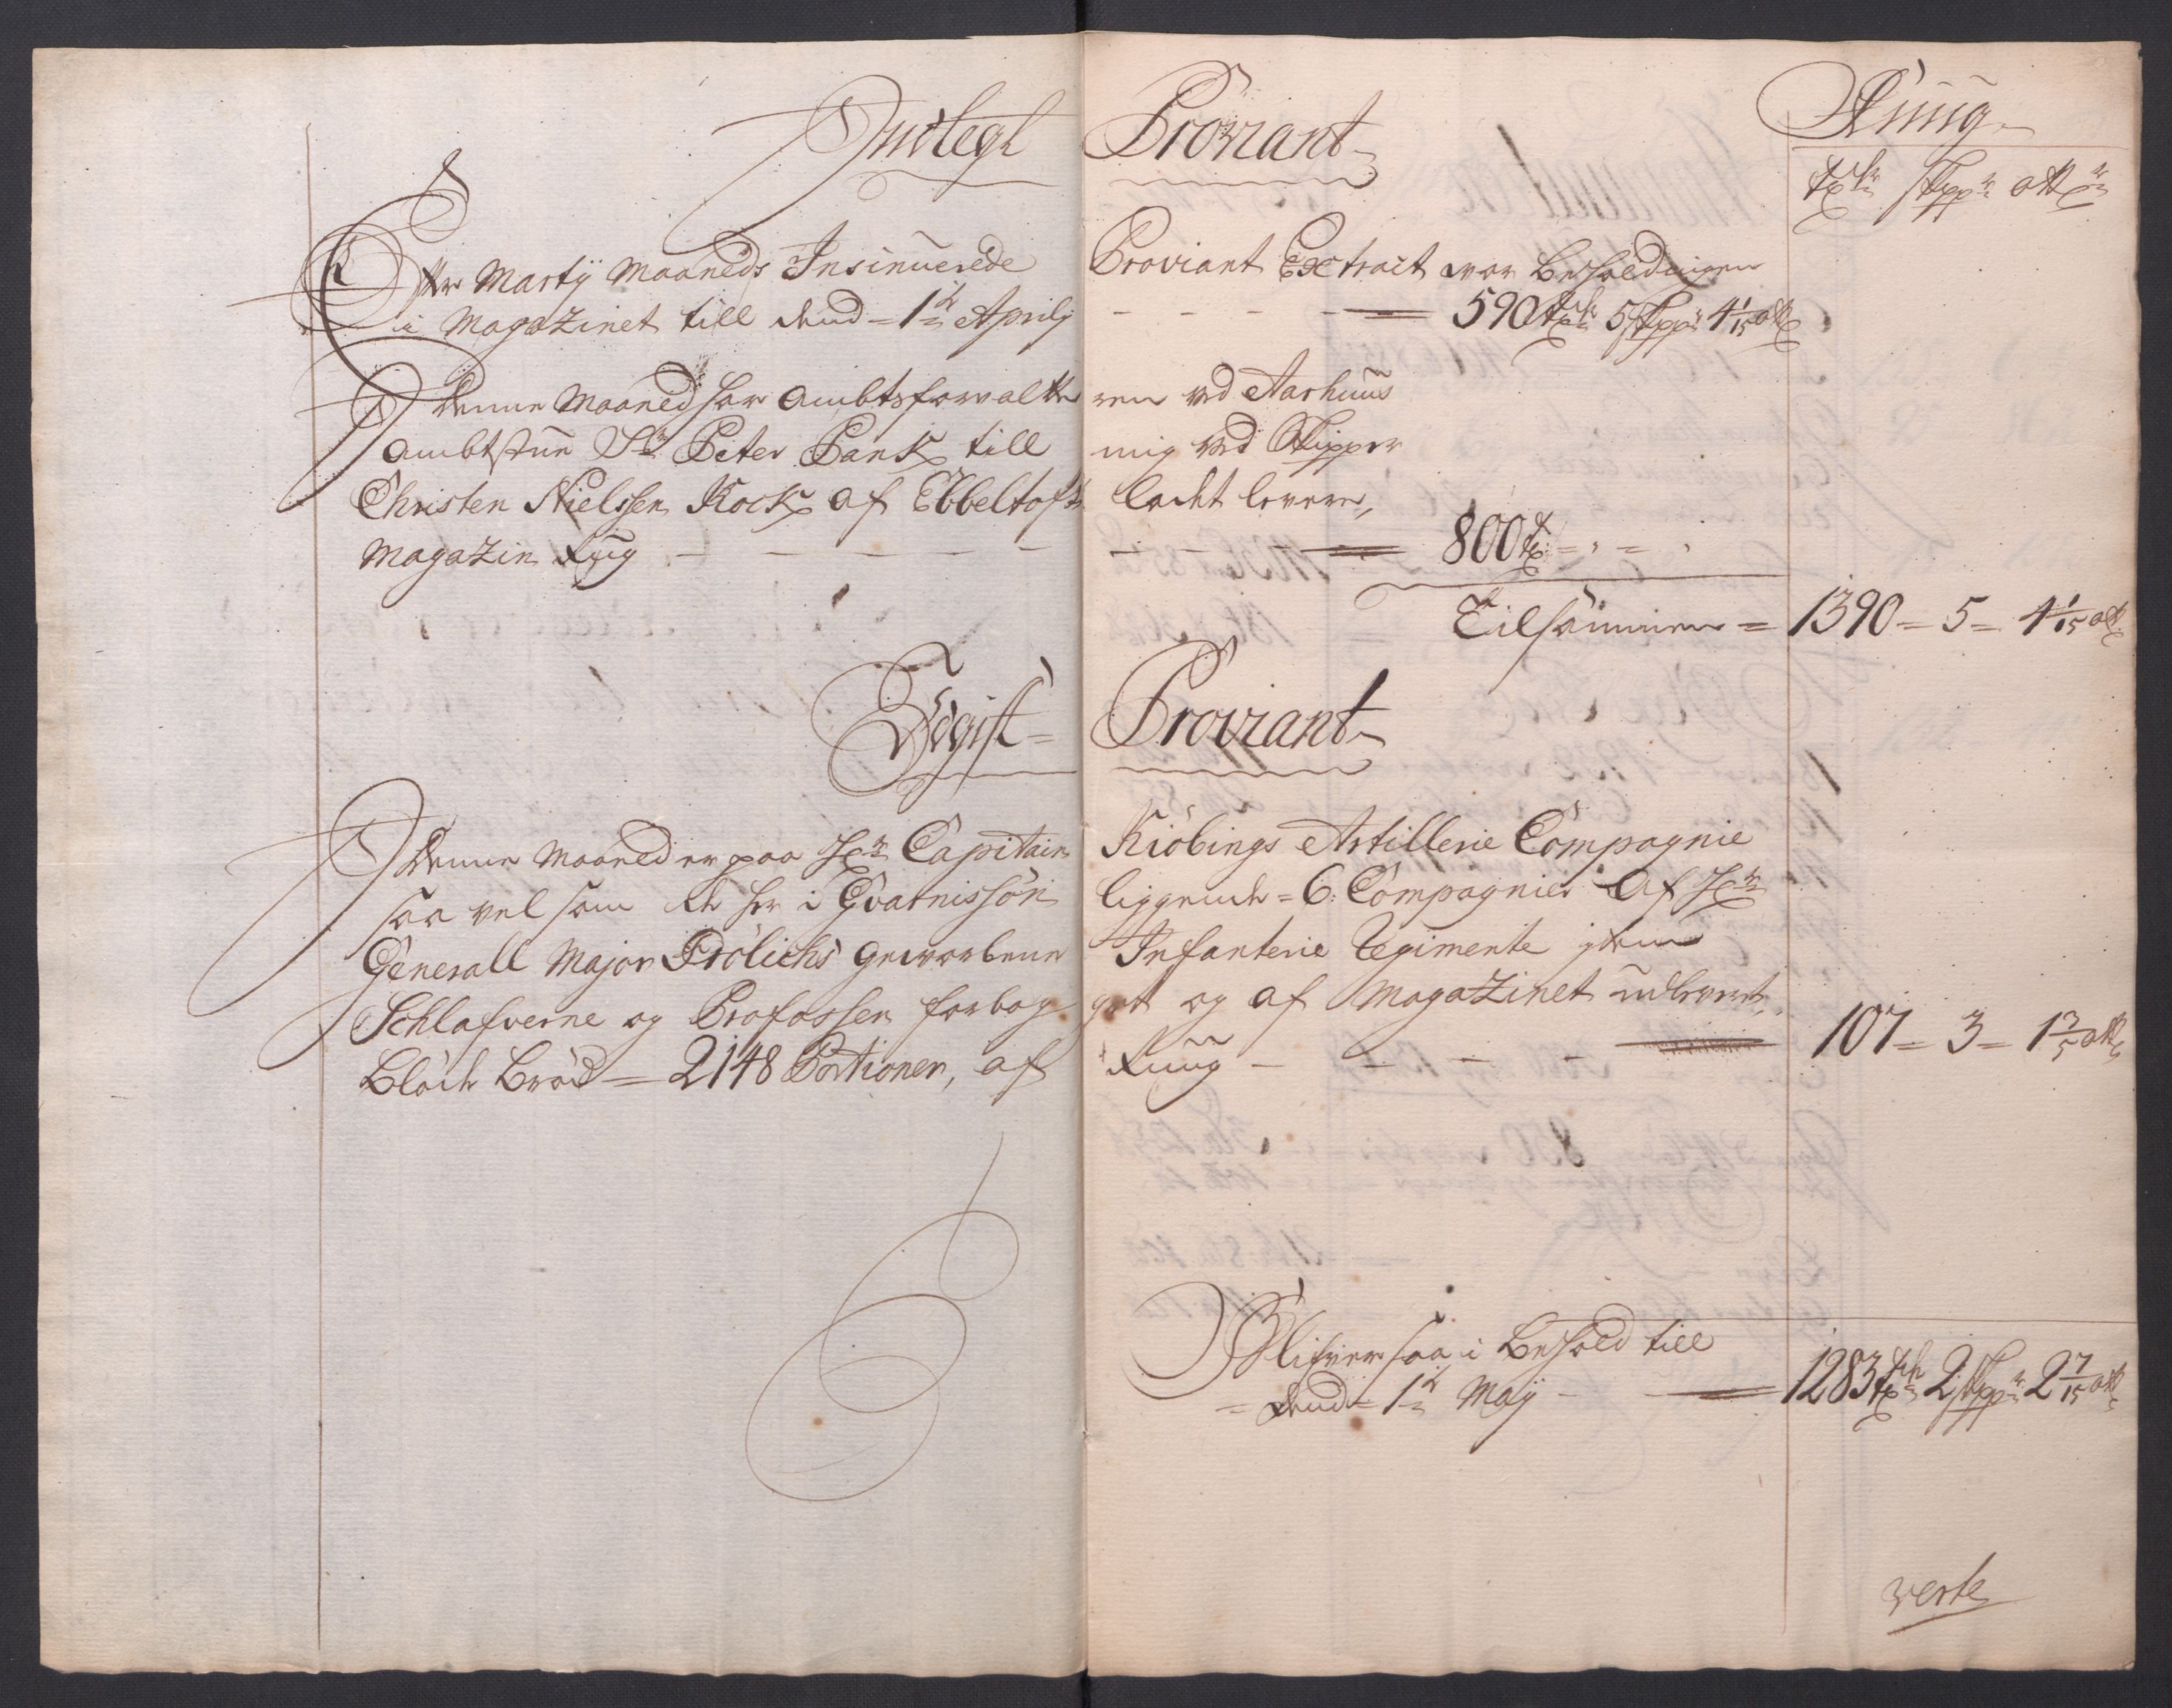 Indtegt Proviant Rüüg
Tdr Skpr ottr
Effter Martÿ Maaneds Insinuerede Proviant Extract var beholdningen
i Magazinet till dend = 1te Aprilj - - - - 590 Tdr 5 Skpr 4 1/15 ott
J denne Maaned har Ambtsforvalteren ved Aarhuus
Ambtstue Sr Peter Pank till mig ved Skipper
Christen Nielssen Kock af Ebbeltoft ladet levere,
Magazin Rug - - - - - - - 800 T = , = ,
Tilsammen = 1390 = 5 = 4 1/15 ott
Udgift = Proviant
J denne Maaned er paa Hr Capitain Kiöbings Artillerie Compagnie
saa vel som de her i Gvarnisson liggende = 6: Compagnier af Hr
Generall Major Frölichs gevorbene Infanterie Regimente jtem
Schlafverne og Profossen forbaget og af Magazinet udleveret,
Blöde Bröd = 2148 Portioner, af Rüüg - - - - 107 = 3 = 1 3/5 ott
Blifver saa i Behold till
= dend = 1te Maÿ - 1283 Tdr 2 Skpr 2 7/15 ott
verte